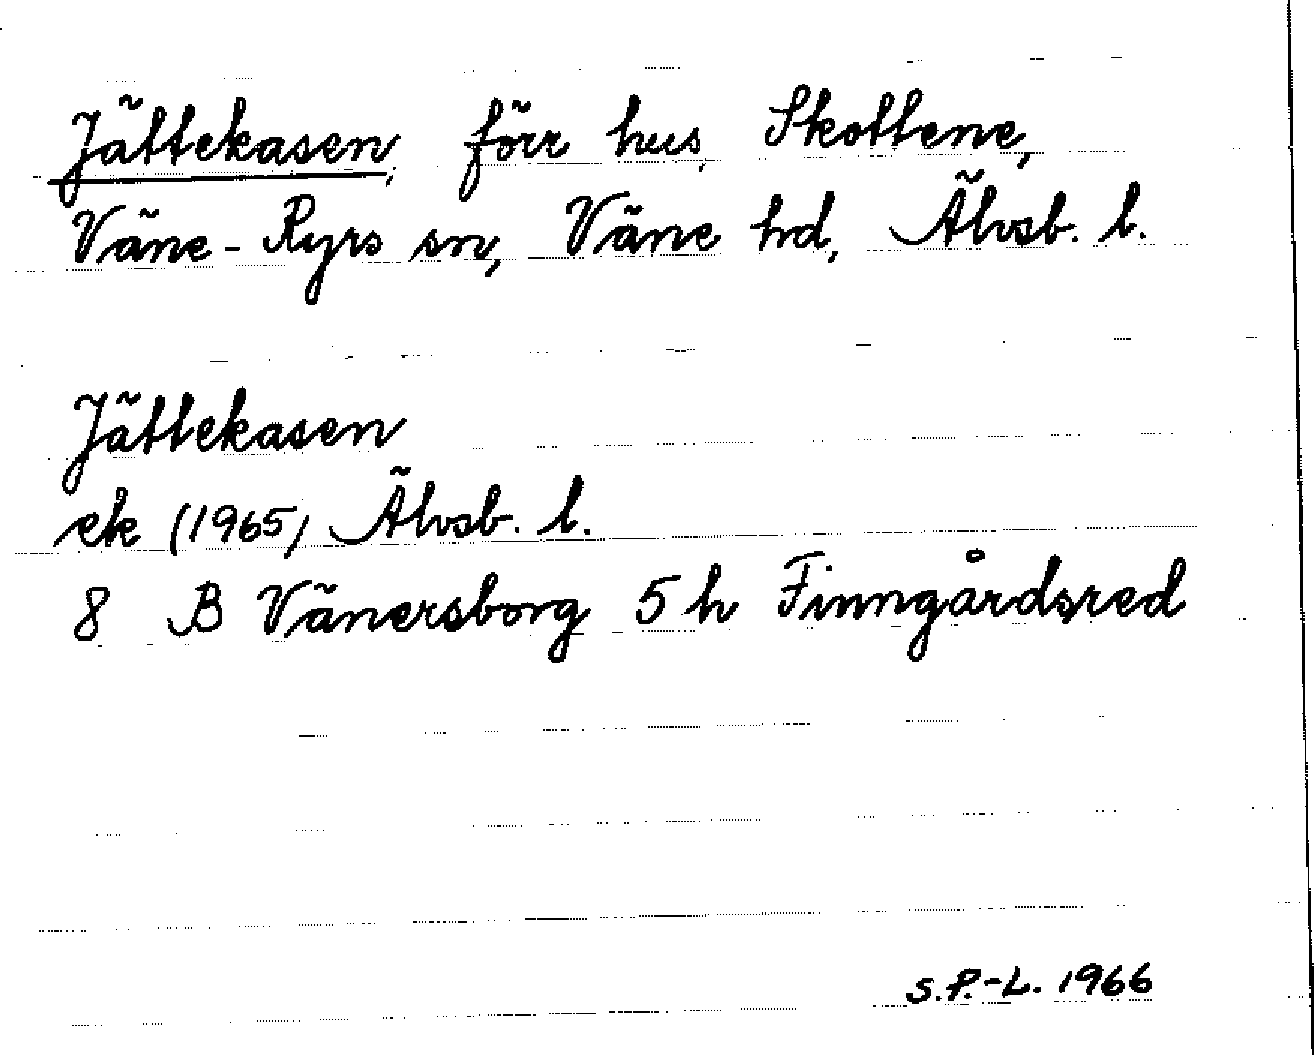 Jättekasen, förr hus, Skottene,
Väne-Ryrs sn, Väne hd, Älvsb. l.
Jättekasen
ek (1965) Älvsb. l.
8 B Vänersborg 5 h Finngårdsred
S.P.-L. 1966